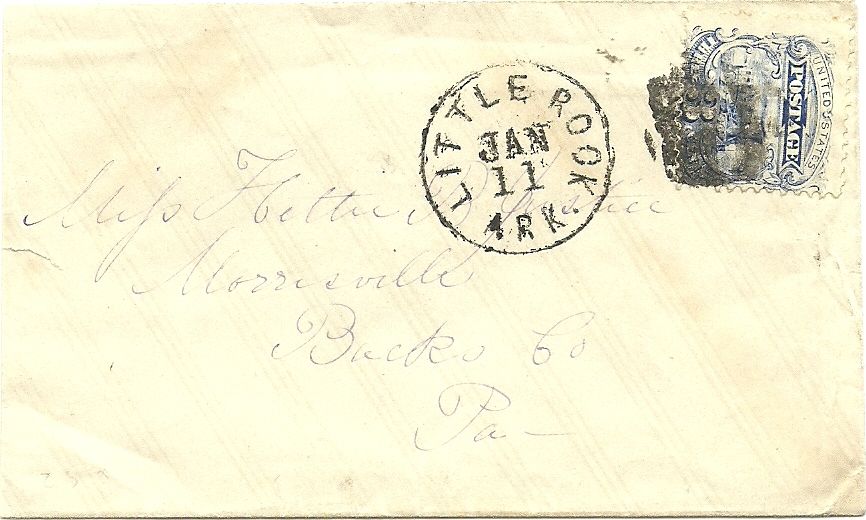 LITTLE ROCK
JAN
11
ARK.
UNITED STATES
POSTAGE
Miss Hettie B Justice
Morrisville
Bucks Co
Pa